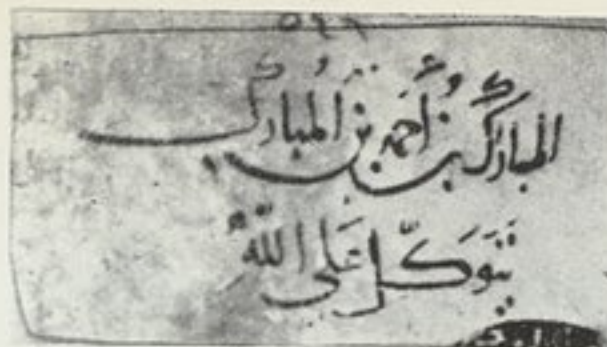 المبارَك بنُ أَحمَد بن المُبارك
يتوَكّل عَلى اللّه